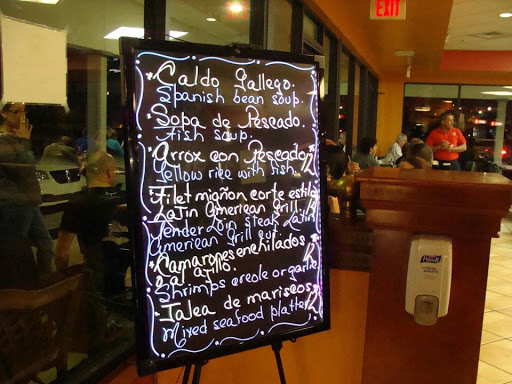 EXIT
*Caldo Gallego.
Spanish bean soup.
*Sopa de Pescado.
Fish soup.
*Arrox con Pescado
Yellow rice with fish.
Filet migñon corte estilo
Latin American Grill.
Tenderloin steak Latin
American Grill
*Camarones enchilados
al ajillo.
Shrimps creole or garlic
*Jalea de mariscos
Mixed seafood platter
PURELL